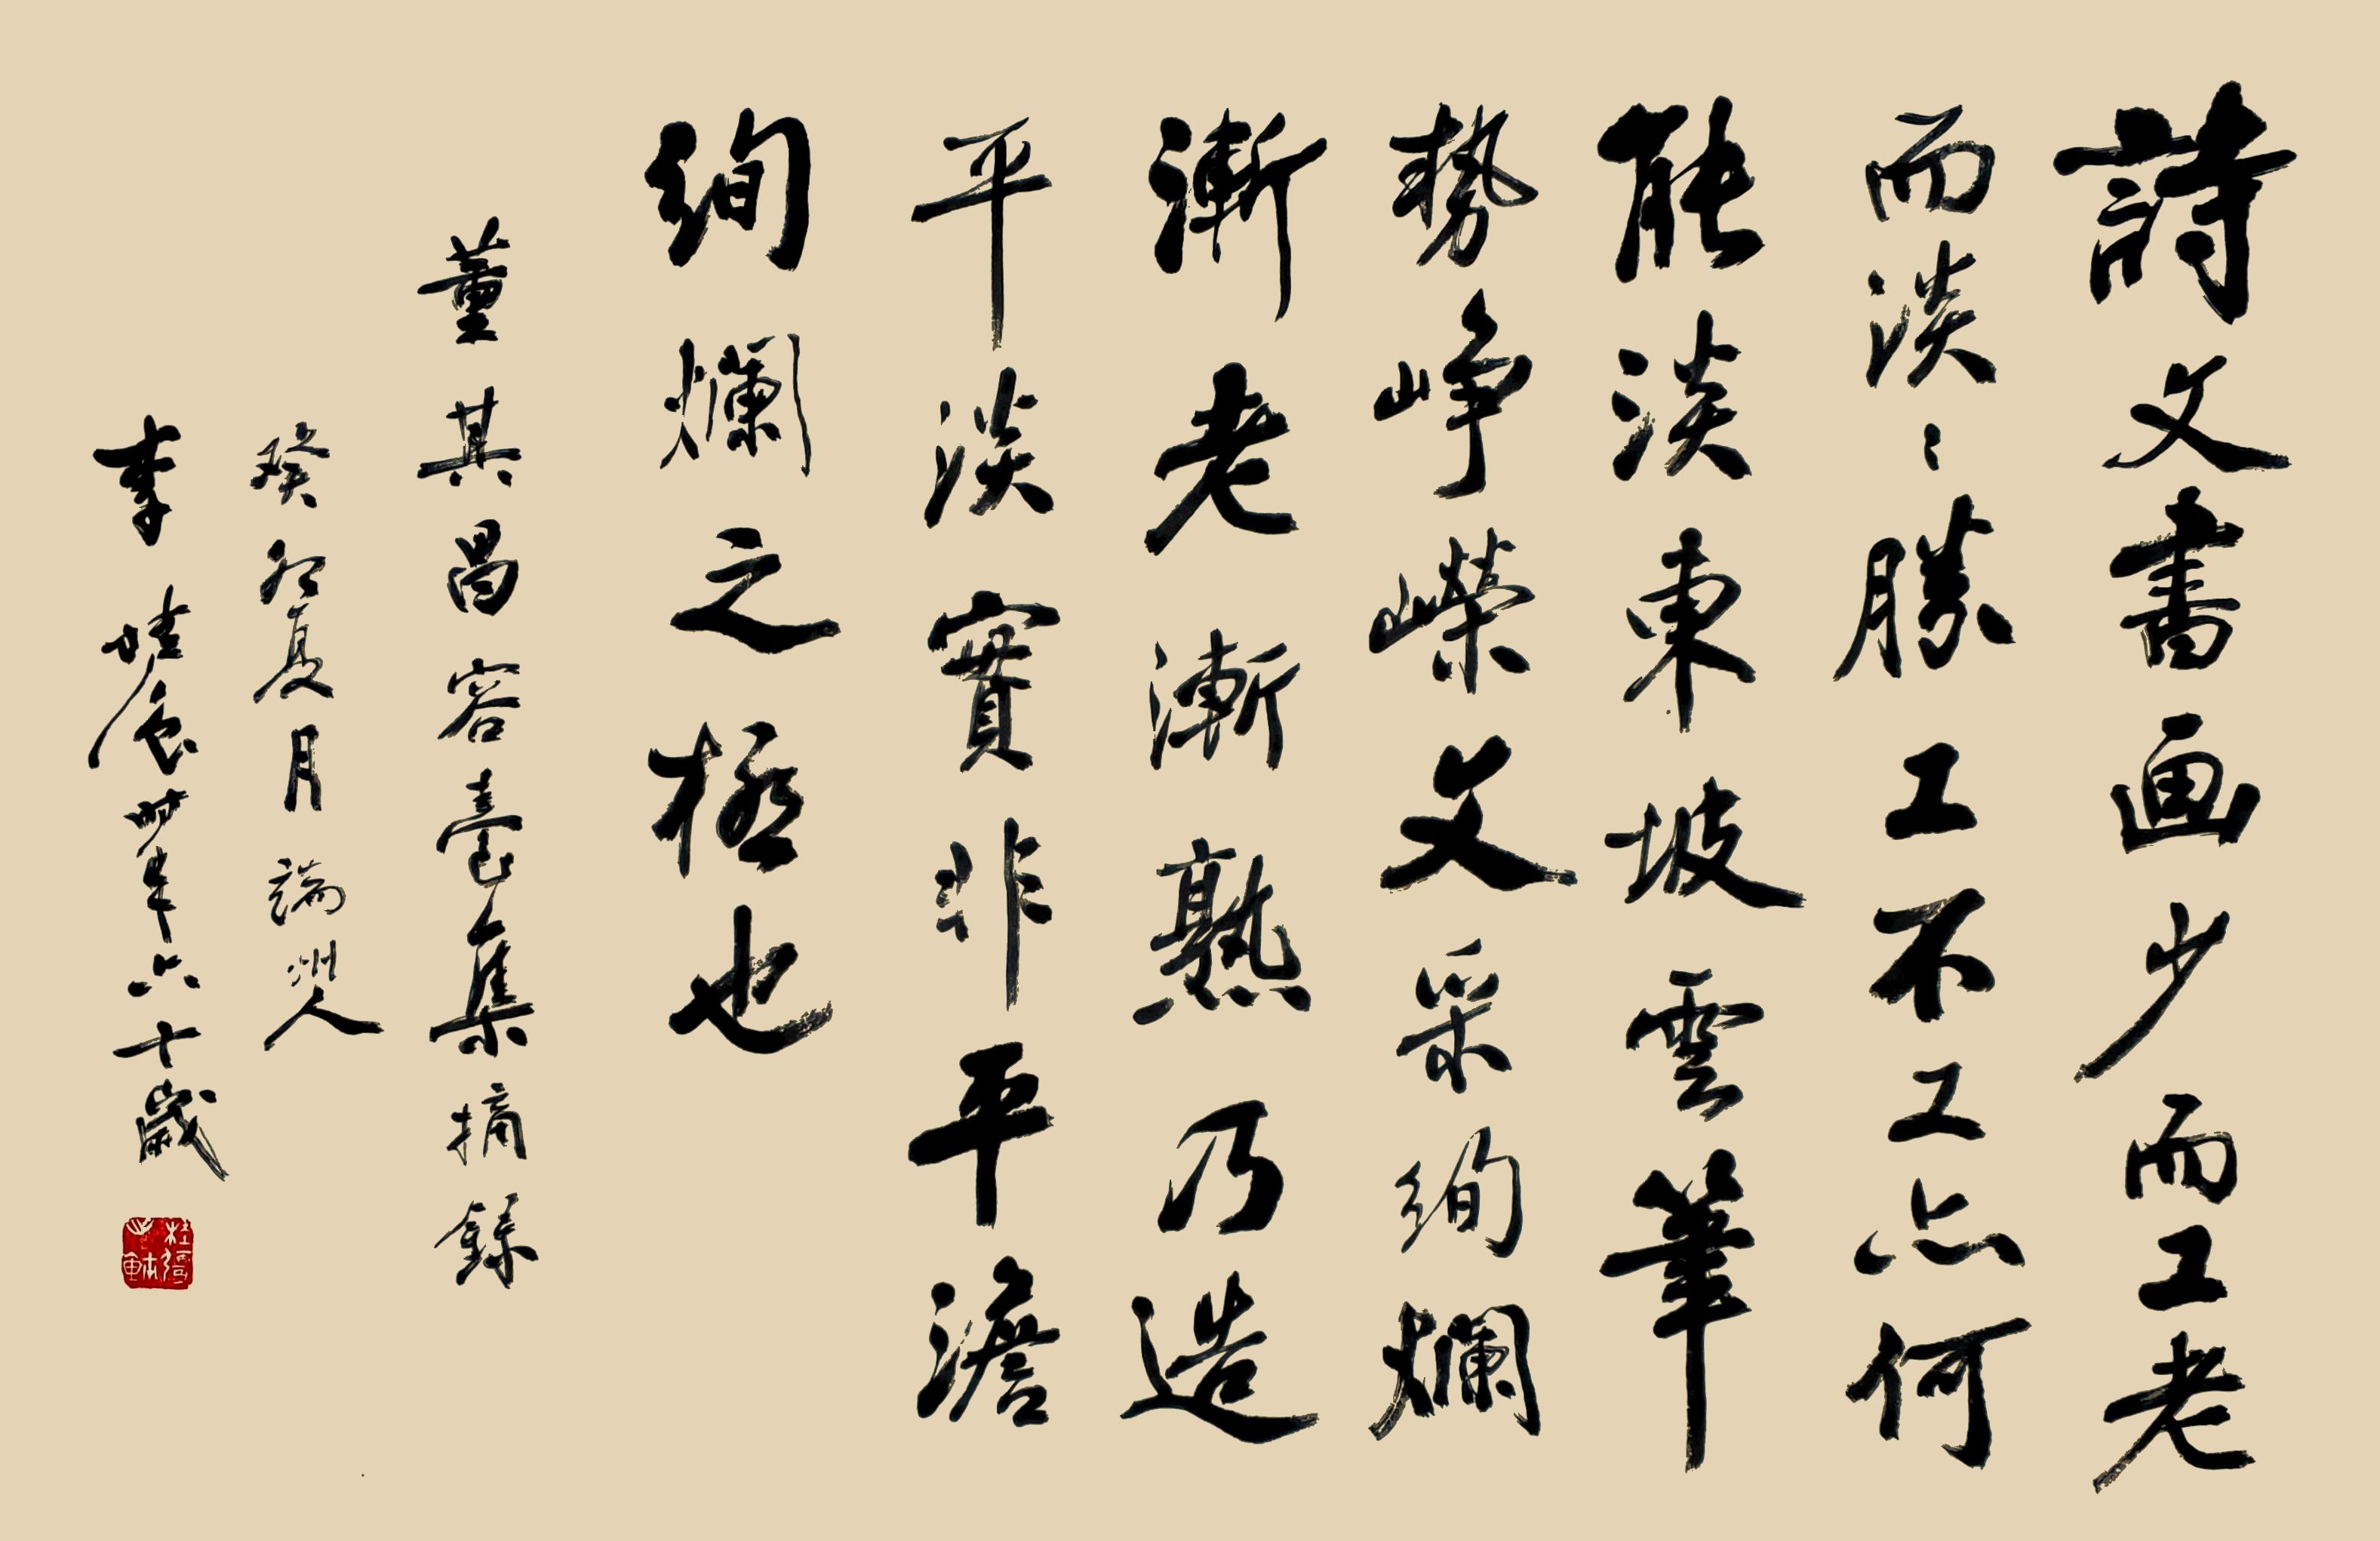 詩文書画少而工老
而淡淡勝工不工亦何
能淡東坡雲筆
勢崢嶸文采絢爛
漸老漸熟乃造
平淡實非平澹
絢爛之極也
董其昌容臺集摘錄
癸卯夏月端州人
李 時年六十歲